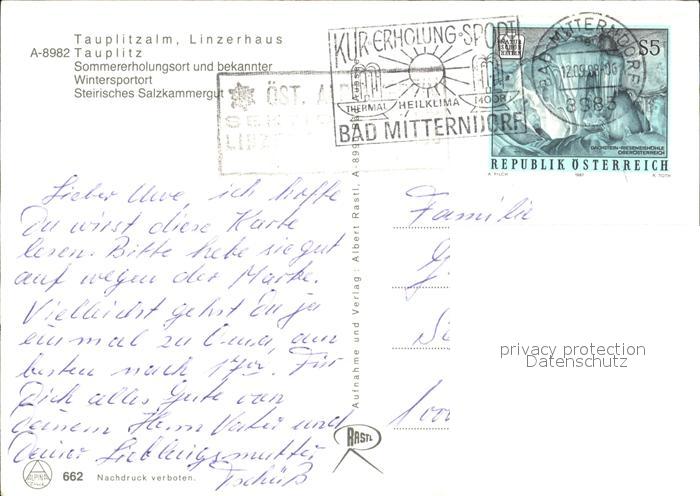 Tauplitzalm, Linzerhaus
A-8982 Tauplitz
Sommererholungsort und bekannter
Wintersportort
Steirisches Salzkammergut
ÖST. AL
SEKTIO
LINZ
KUR·ERHOLUNG·SPORT
THERMAL HEILKLIMA MOOR
BAD MITTERNDORF
BAD MITTERNDORF
12.09.88
8983
S5
DACHSTEIN-RIESENEISHÖHLE
OBERÖSTERREICH
REPUBLIK ÖSTERREICH
A. PILCH 1987 K. TOTH
Lieber Uwe, ich hoffe
Du wirst diese Karte
lesen. Bitte hebe sie gut
auf wegen der Marke.
Vielleicht gehst Du ja
einmal zu Oma, am
besten nach 17 Uhr. Für
Dich alles Gute von
deinem Herrn Vater und
Deiner Lieblingsmutter
Tschüß
Aufnahme und Verlag: Albert Rastl, A-899
RASTL
Familie
100
privacy protection
Datenschutz
ALPINA
662 Nachdruck verboten.